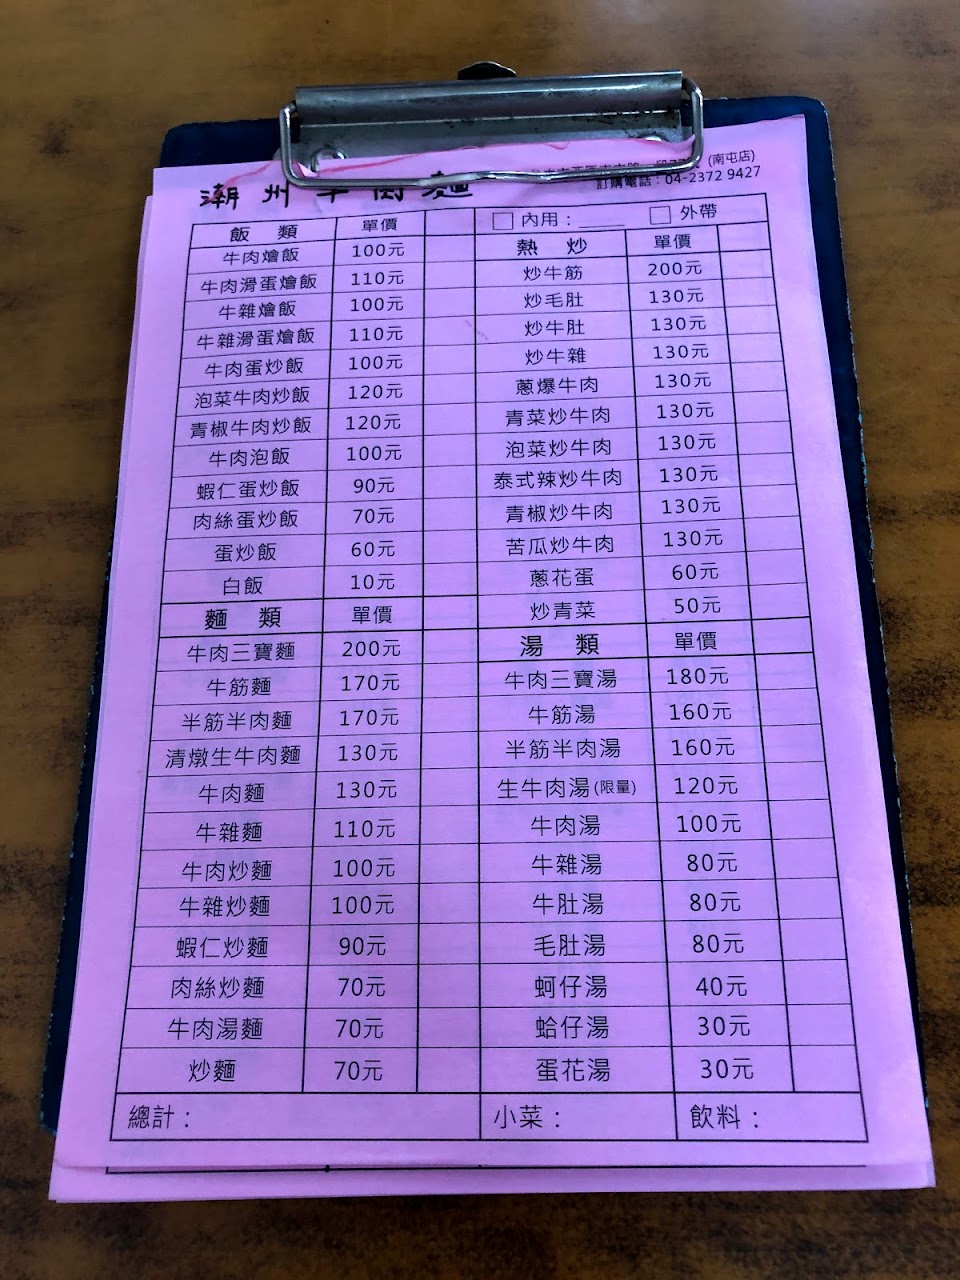 潮州牛肉麵
(南屯店)
訂購電話：04-2372 9427
飯 類 單價
牛肉燴飯 100元
牛肉滑蛋燴飯 110元
牛雜燴飯 100元
牛雜滑蛋燴飯 110元
牛肉蛋炒飯 100元
泡菜牛肉炒飯 120元
青椒牛肉炒飯 120元
牛肉泡飯 100元
蝦仁蛋炒飯 90元
肉絲蛋炒飯 70元
蛋炒飯 60元
白飯 10元
麵 類 單價
牛肉三寶麵 200元
牛筋麵 170元
半筋半肉麵 170元
清燉生牛肉麵 130元
牛肉麵 130元
牛雜麵 110元
牛肉炒麵 100元
牛雜炒麵 100元
蝦仁炒麵 90元
肉絲炒麵 70元
牛肉湯麵 70元
炒麵 70元
□ 內用：____ □ 外帶
熱 炒 單價
炒牛筋 200元
炒毛肚 130元
炒牛肚 130元
炒牛雜 130元
蔥爆牛肉 130元
青菜炒牛肉 130元
泡菜炒牛肉 130元
泰式辣炒牛肉 130元
青椒炒牛肉 130元
苦瓜炒牛肉 130元
蔥花蛋 60元
炒青菜 50元
湯 類 單價
牛肉三寶湯 180元
牛筋湯 160元
半筋半肉湯 160元
生牛肉湯(限量) 120元
牛肉湯 100元
牛雜湯 80元
牛肚湯 80元
毛肚湯 80元
蚵仔湯 40元
蛤仔湯 30元
蛋花湯 30元
總計： 小菜： 飲料：